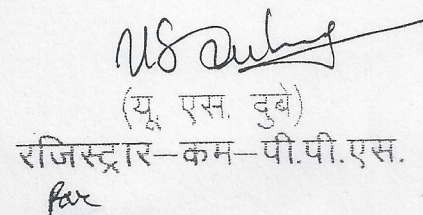 US Dubey
(यू. एस. दुबे)
रजिस्ट्रार-कम-पी.पी.एस.
for